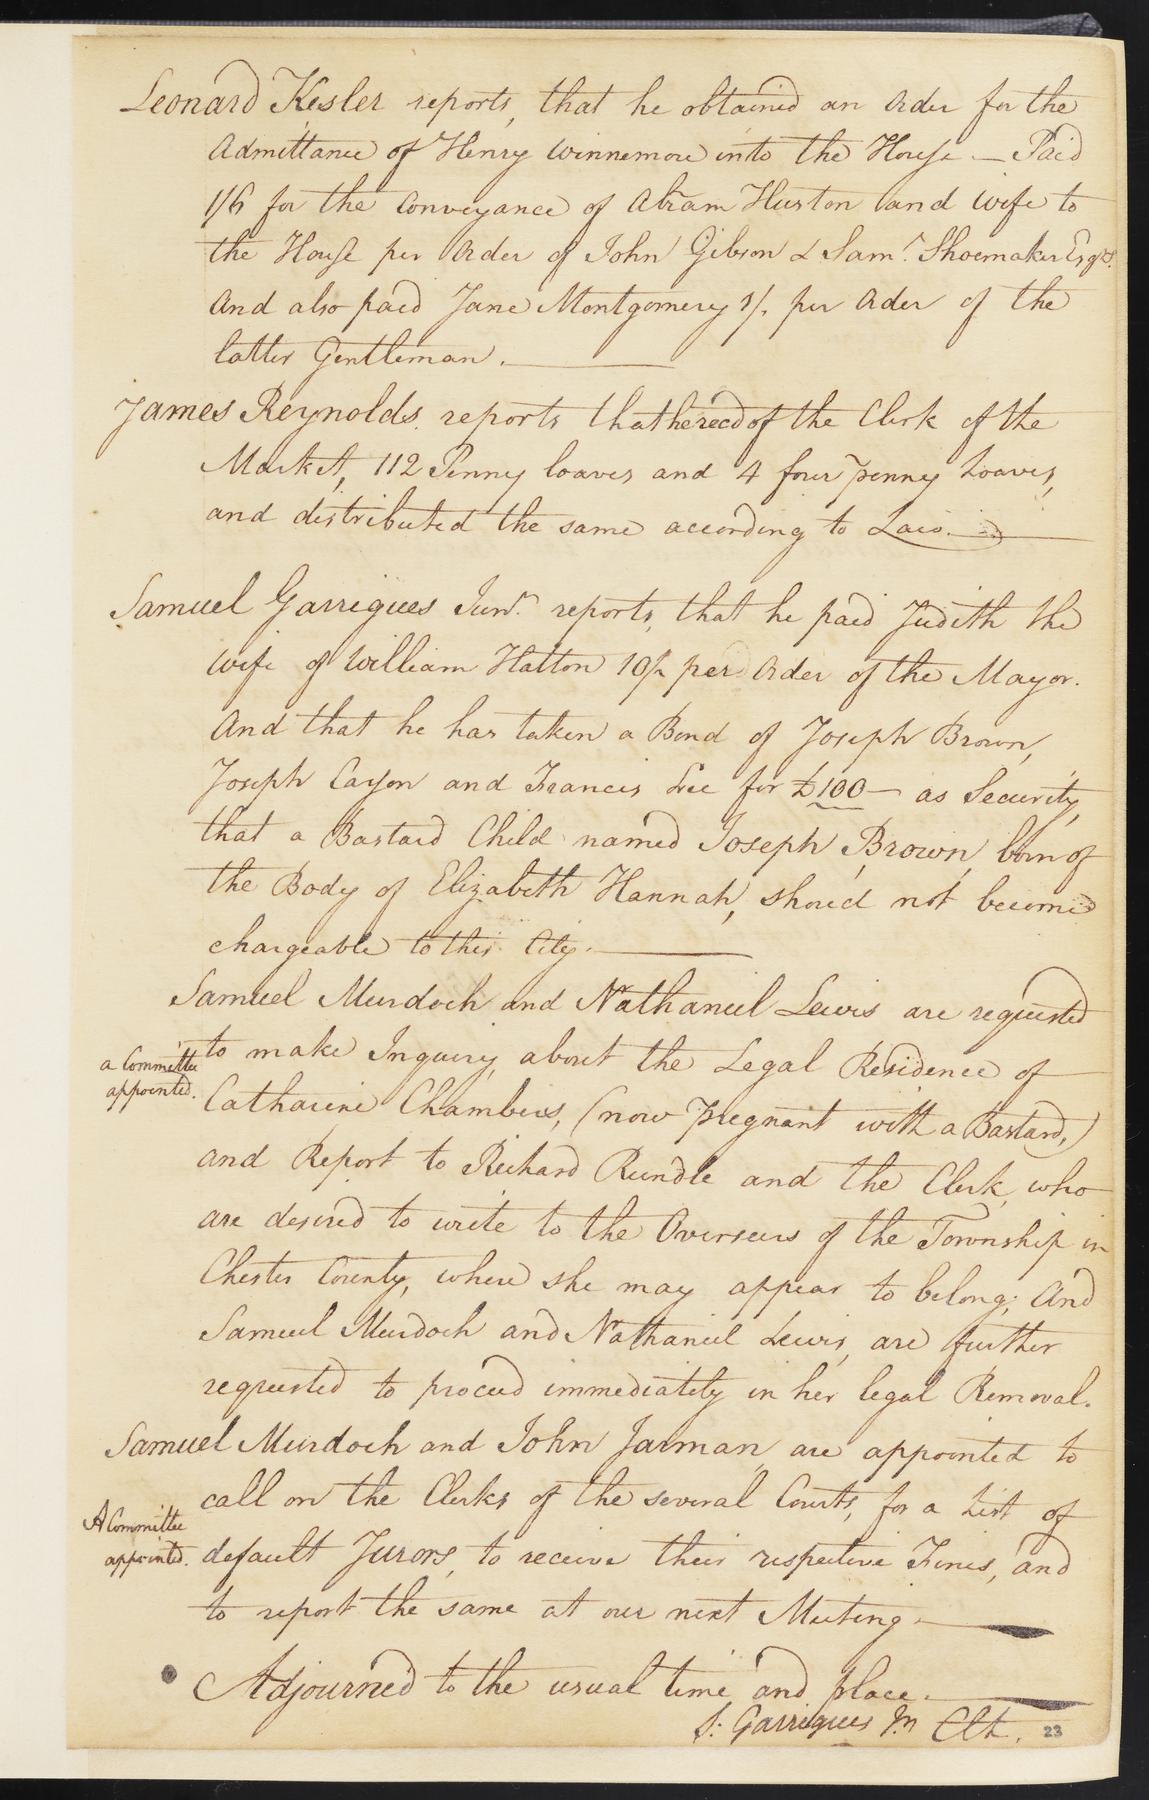 Leonard Kesler reports, that he obtained an Order for the
Admittance of Henry Winnemore into the House — Paid
1/6 for the Conveyance of Abram Huston and wife to
the House per Order of John Gibson & Sam.l Shoemaker Esqrs.
And also paid Jane Montgomery 5/. per Order of the
latter Gentleman.
James Reynolds reports that he recd of the Clerk of the
Market, 112 Penny loaves and 4 four penny Loaves,
and distributed the same according to Law.
Samuel Garrigues Junr. reports, that he paid Judith the
wife of William Hatton 10/. per Order of the Mayor.
And that he has taken a Bond of Joseph Brown,
Joseph Cayon and Francis Lee for £100 — as Security,
that a Bastard Child named Joseph Brown, born of
the Body of Elizabeth Hannah, should not become
chargeable to this City.
Samuel Murdoch and Nathaniel Lewis are requested
to make Inquiry, about the Legal Residence of
a Committee
appointed.
Catharine Chambers, (now pregnant with a Bastard,)
and Report to Richard Rundle and the Clerk, who
are desired to write to the Overseers of the Township in
Chester County, where she may appear to belong; And
Samuel Murdoch and Nathaniel Lewis, are further
requested to proceed immediately in her legal Removal.
Samuel Murdoch and John Jarman, are appointed to
call on the Clerks of the several Courts, for a List of
A Committee
appointed.
default Jurors, to receive their respective Fines, and
to report the same at our next Meeting.
Adjourned to the usual time and place.
S: Garrigues Jn Clk.
23